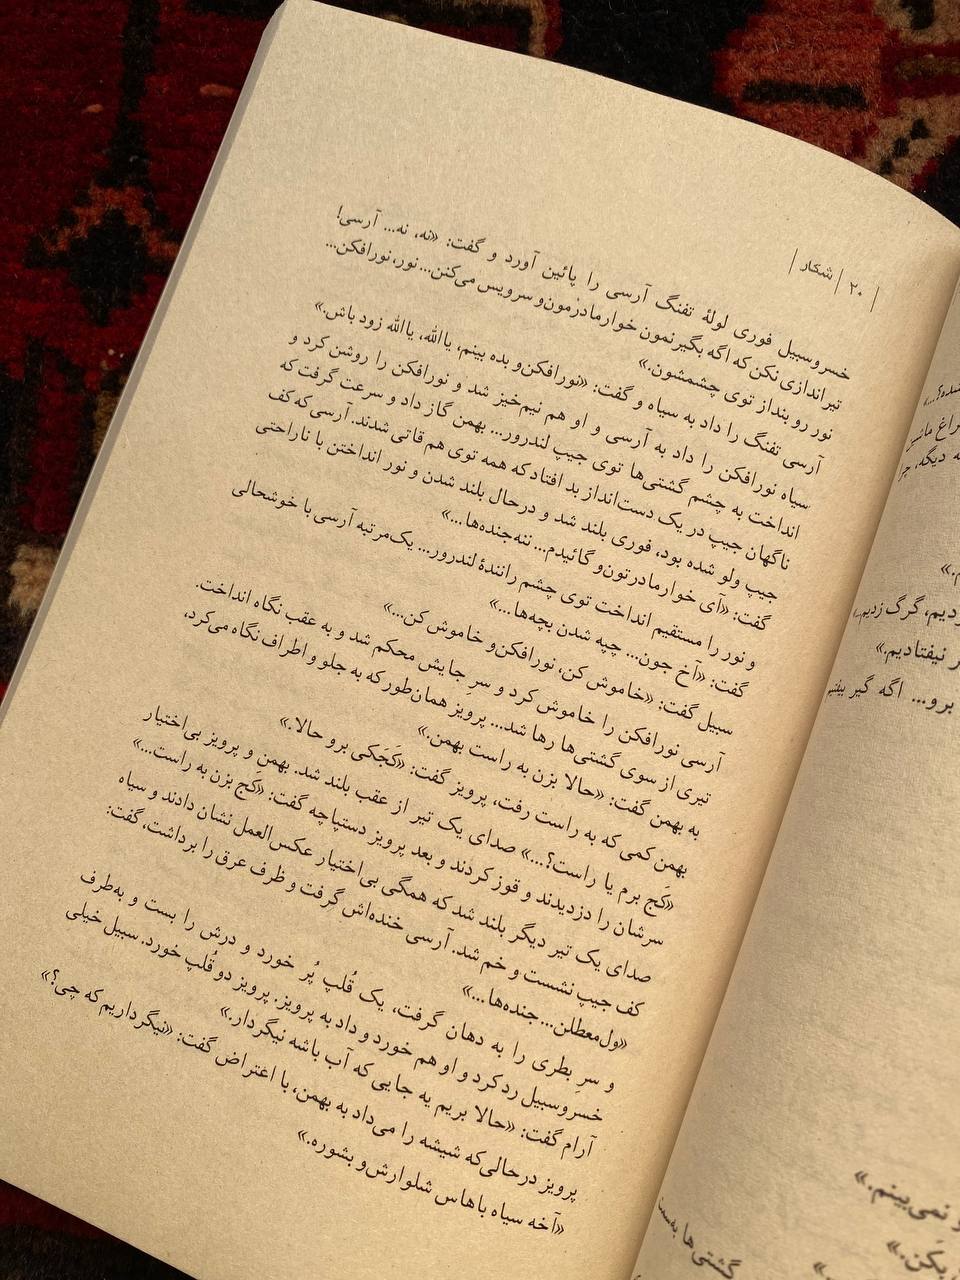 | ۲۰ | شکار |
خسروسبیل فوری لولهٔ تفنگ آرسی را پائین آورد و گفت: «نه، نه... آرسی!
تیراندازی نکن که اگه بگیرنمون خوارمادرمون‌و سرویس می‌کنن... نور، نورافکن...
نور رو بنداز توی چشمشون.»
آرسی تفنگ را داد به سیاه و گفت: «نورافکن‌و بده بینم، یاالله، یاالله زود باش.»
سیاه نورافکن را داد به آرسی و او هم نیم‌خیز شد و نورافکن را روشن کرد و
انداخت به چشم گشتی‌ها توی جیپ لندرور... بهمن گاز داد و سرعت گرفت که
ناگهان جیپ در یک دست‌انداز بد افتاد که همه توی هم قاتی شدند. آرسی که کف
جیپ ولو شده بود، فوری بلند شد و درحال بلند شدن و نور انداختن با ناراحتی
گفت: «آی خوارمادرتون‌و گائیدم... ننه‌جنده‌ها...»
و نور را مستقیم انداخت توی چشم رانندهٔ لندرور... یک‌مرتبه آرسی با خوشحالی
گفت: «آخ جون... چپه شدن بچه‌ها...»
سبیل گفت: «خاموش کن، نورافکن‌و خاموش کن...»
آرسی نورافکن را خاموش کرد و سرِ جایش محکم شد و به عقب نگاه انداخت.
تیری از سوی گشتی‌ها رها شد... پرویز همان‌طور که به جلو و اطراف نگاه می‌کرد،
به بهمن گفت: «حالا بزن به راست بهمن.»
بهمن کمی که به راست رفت، پرویز گفت: «کَجَکی برو حالا.»
«کَج برم یا راست؟...» صدای یک تیر از عقب بلند شد. بهمن و پرویز بی‌اختیار
سرشان را دزدیدند و قوز کردند و بعد پرویز دستپاچه گفت: «کَج بزن به راست...»
صدای یک تیر دیگر بلند شد که همگی بی‌اختیار عکس‌العمل نشان دادند و سیاه
کف جیپ نشست و خم شد. آرسی خنده‌اش گرفت و ظرف عرق را برداشت، گفت:
«ول‌معطلن... جنده‌ها...»
و سرِ بطری را به دهان گرفت، یک قُلپ پُر خورد و درش را بست و به‌طرف
خسروسبیل رد کرد و او هم خورد و داد به پرویز. پرویز دو قُلپ خورد. سبیل خیلی
آرام گفت: «حالا بریم یه جایی که آب باشه نیگردار.»
پرویز درحالی‌که شیشه را می‌داد به بهمن، با اعتراض گفت: «نیگرداریم که چی؟»
«آخه سیاه باهاس شلوارش‌و بشوره.»
دیگه، چرا
دیم، گرگ زدیم
نیفتادیم.»
برو... اگه گیر
نمی‌بینم.»
بکن.»
گشتی‌ها